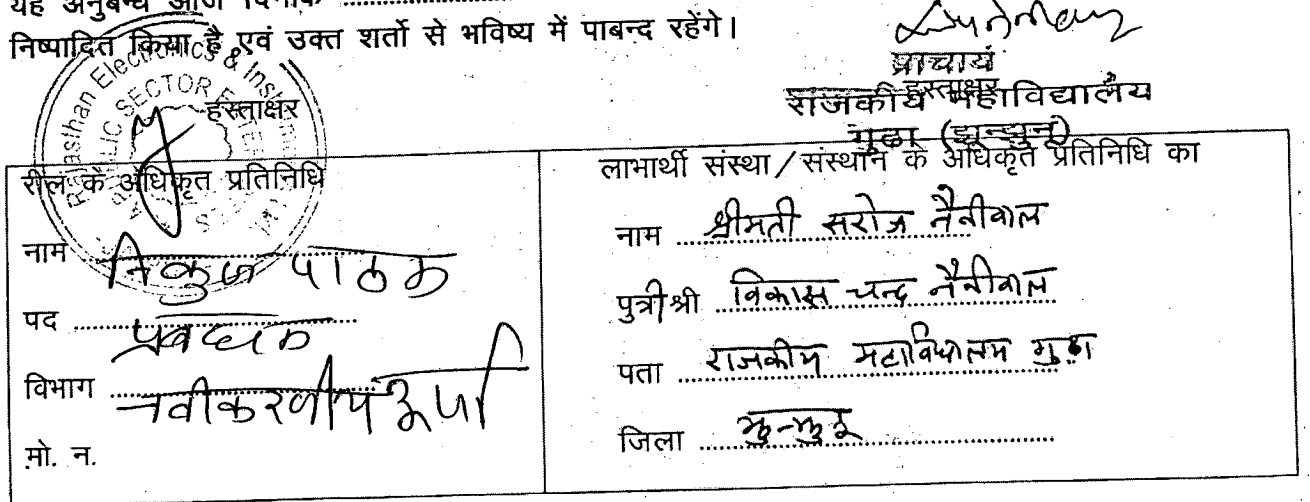 यह अनुबन्ध आज दिनांक ..............................
निष्पादित किया है एवं उक्त शर्तो से भविष्य में पाबन्द रहेंगे।
Rajasthan Electronics & Inst
PUBLIC SECTOR
हस्ताक्षर
प्राचार्य
हस्ताक्षर
राजकीय महाविद्यालय
गुढा (झुन्झुनूं)
रील के अधिकृत प्रतिनिधि
नाम निकुंज पाठक
पद ........ प्रबंधक
विभाग ........ नवीकरणीय ऊर्जा
मो. न.
लाभार्थी संस्था/संस्थान के अधिकृत प्रतिनिधि का
नाम ........ श्रीमती सरोज नैनीवाल
पुत्री श्री ........ विकास चन्द्र नैनीवाल
पता ........ राजकीय महाविद्यालय गुढ़ा
जिला ........ झुन्झुनू